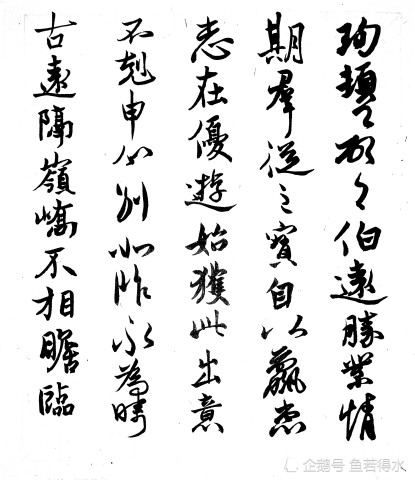 珣頓首頓首伯遠勝業情
期羣從之寶自以羸患
志在優遊始獲此出意
不剋申分別如昨永為疇
古遠隔嶺嶠不相瞻臨
企鹅号 鱼若得水